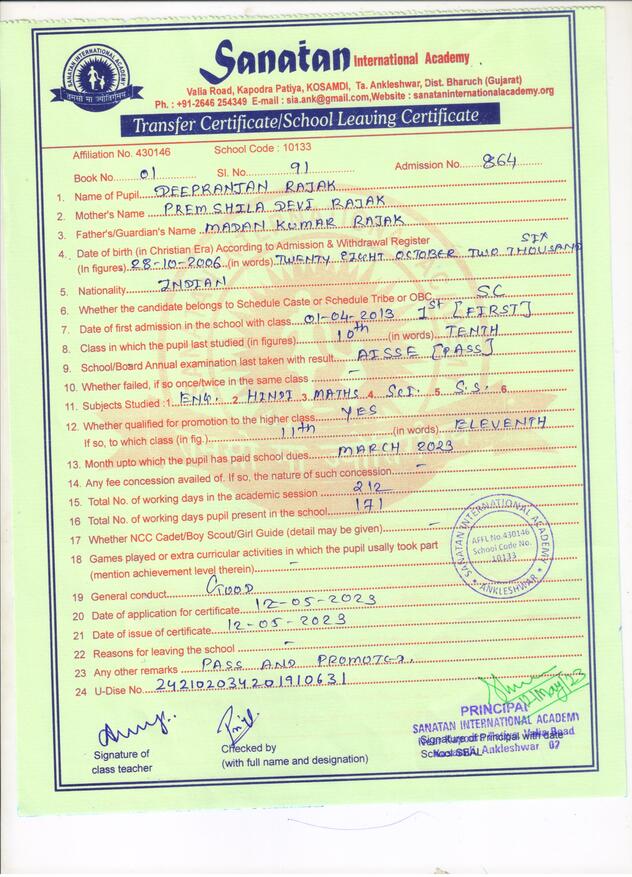 SANATAN INTERNATIONAL ACADEMY
तमसो मा ज्योतिर्गमय
Sanatan International Academy
Valia Road, Kapodra Patiya, KOSAMDI, Ta. Ankleshwar, Dist. Bharuch (Gujarat)
Ph. : +91-2646 254349 E-mail : sia.ank@gmail.com,Website : sanataninternationalacademy.org
Transfer Certificate/School Leaving Certificate
Affiliation No. 430146 School Code : 10133
Book No. 01 Sl. No. 91 Admission No. 864
1. Name of Pupil DEEPRANJAN RAJAK
2. Mother's Name PREMSHILA DEVI RAJAK
3. Father's/Guardian's Name MADAN KUMAR RAJAK
4. Date of birth (in Christian Era) According to Admission & Withdrawal Register SIX
(In figures) 28-10-2006 (in words) TWENTY EIGHT OCTOBER TWO THOUSAND
5. Nationality INDIAN
6. Whether the candidate belongs to Schedule Caste or Schedule Tribe or OBC SC
7. Date of first admission in the school with class 01-04-2013 1st [FIRST]
8. Class in which the pupil last studied (in figures) 10th (in words) TENTH
9. School/Board Annual examination last taken with result AISSE [PASS]
10. Whether failed, if so once/twice in the same class -
11. Subjects Studied :1. ENG. 2 HINDI 3 MATHS 4. SCI. 5. S.S. 6.
12. Whether qualified for promotion to the higher class YES
If so, to which class (in fig.) 11th (in words) ELEVENTH
13. Month upto which the pupil has paid school dues MARCH 2023
14. Any fee concession availed of. If so, the nature of such concession -
15. Total No. of working days in the academic session 212
16 Total No. of working days pupil present in the school 171
17 Whether NCC Cadet/Boy Scout/Girl Guide (detail may be given) -
18 Games played or extra curricular activities in which the pupil usally took part
(mention achievement level therein) -
19 General conduct GOOD
20 Date of application for certificate 12-05-2023
21 Date of issue of certificate 12-05-2023
22 Reasons for leaving the school -
23 Any other remarks PASS AND PROMOTED.
24 U-Dise No 242102034201910631
SANATAN INTERNATIONAL ACADEMY
AFFL No.430146
School Code No.
10133
ANKLESHWAR
12/May/23
PRINCIPAL
SANATAN INTERNATIONAL ACADEMY
Valia Road
Signature of Principal with date
School SEAL
Ankleshwar 02
Signature of
class teacher
Checked by
(with full name and designation)